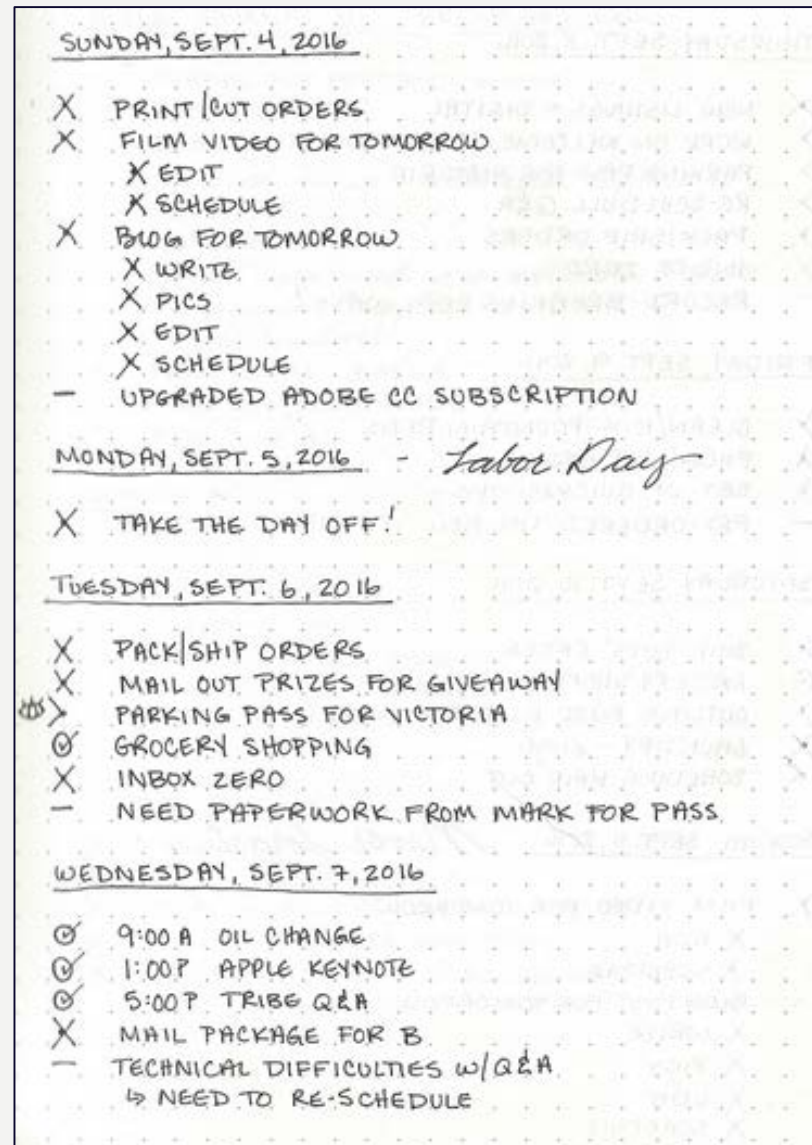 SUNDAY, SEPT. 4, 2016
X PRINT|CUT ORDERS
X FILM VIDEO FOR TOMORROW
X EDIT
X SCHEDULE
X BLOG FOR TOMORROW
X WRITE
X PICS
X EDIT
X SCHEDULE
— UPGRADED ADOBE CC SUBSCRIPTION
MONDAY, SEPT. 5, 2016 - Labor Day
X TAKE THE DAY OFF!
TUESDAY, SEPT. 6, 2016
X PACK|SHIP ORDERS
X MAIL OUT PRIZES FOR GIVEAWAY
> PARKING PASS FOR VICTORIA
GROCERY SHOPPING
X INBOX ZERO
— NEED PAPERWORK FROM MARK FOR PASS
WEDNESDAY, SEPT. 7, 2016
9:00 A OIL CHANGE
1:00 P APPLE KEYNOTE
5:00 P TRIBE Q&A
X MAIL PACKAGE FOR B
— TECHNICAL DIFFICULTIES W/Q&A
↳ NEED TO RE-SCHEDULE